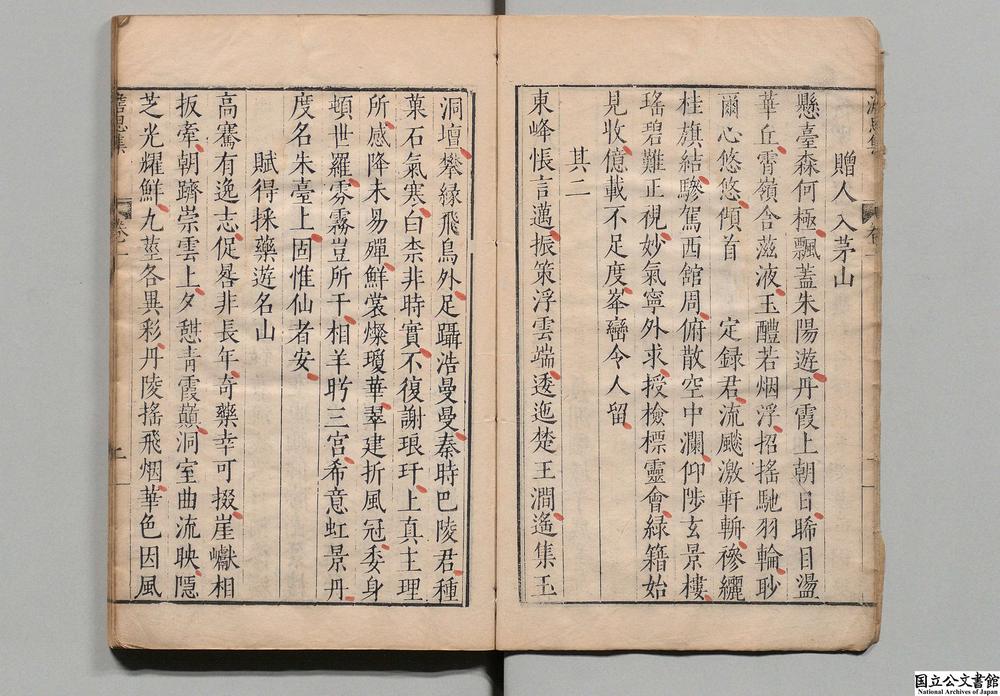 贈人入茅山
懸臺森何極飄蓋朱陽遊丹霞上朝日睎目盪
華丘霄嶺含滋液玉醴若烟浮招搖馳羽輪眇
爾心悠悠傾首 定録君流飈激軒斬襂纚
桂旗結驂駕西館周俯散空中瀾仰陟玄景樓
瑤碧難正視妙氣寧外求授檢標靈會緑籍始
見收億載不足度峯巒令人留
其二
東峰悵言邁振策浮雲端逶迤楚王澗遙集玉
洞壇攀縁飛鳥外足躡浩曼曼秦時巴陵君種
菓石氣寒白柰非時實不復謝琅玕上真主理
所感降未易殫鮮裳燦瓊華翠建折風冠委身
頓世羅雰霧豈所干相羊眄三宮希意虹景丹
度名朱臺上固惟仙者安
賦得採藥遊名山
高騫有逸志促晷非長年奇藥幸可掇崖巘相
扳牽朝躋崇雲上夕憇青霞巔洞室曲流映隱
芝光耀鮮九莖各異彩丹陵搖飛烟華色因風
卷一
国立公文書館
National Archives of Japan